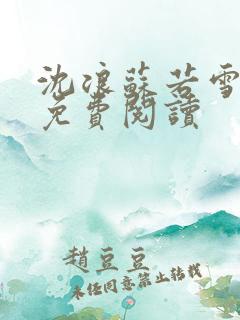 沈浪蘇若雪
免費閱讀
趙豆豆
未經同意禁止轉載